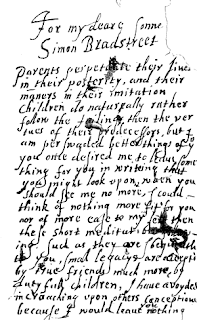 For my deare sonne
Simon Bradstreet
Parents perpetuate their lives
in their posterity, and their
maners in their imitation
Children do naturally rather
follow the failings then the ver
tues of their predecessors, but I
am perswaded better things of
you once desired me to leave some
thing for you in writing that
you might look upon when you
should see me no more, I could
think of nothing more fit for you
nor of more ease to my self then
these short meditations
such as they are I bequeath
to you, small legacys are accepted
by true friends much more by
duty full children, I have avoyded
incroaching upon others conceptions
because I would leave you nothing